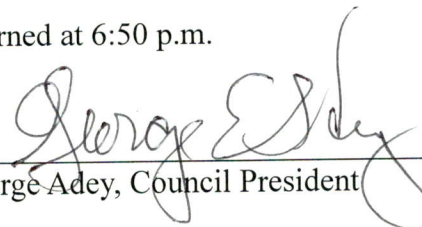 rned at 6:50 p.m.
George E Adey
rge Adey, Council President